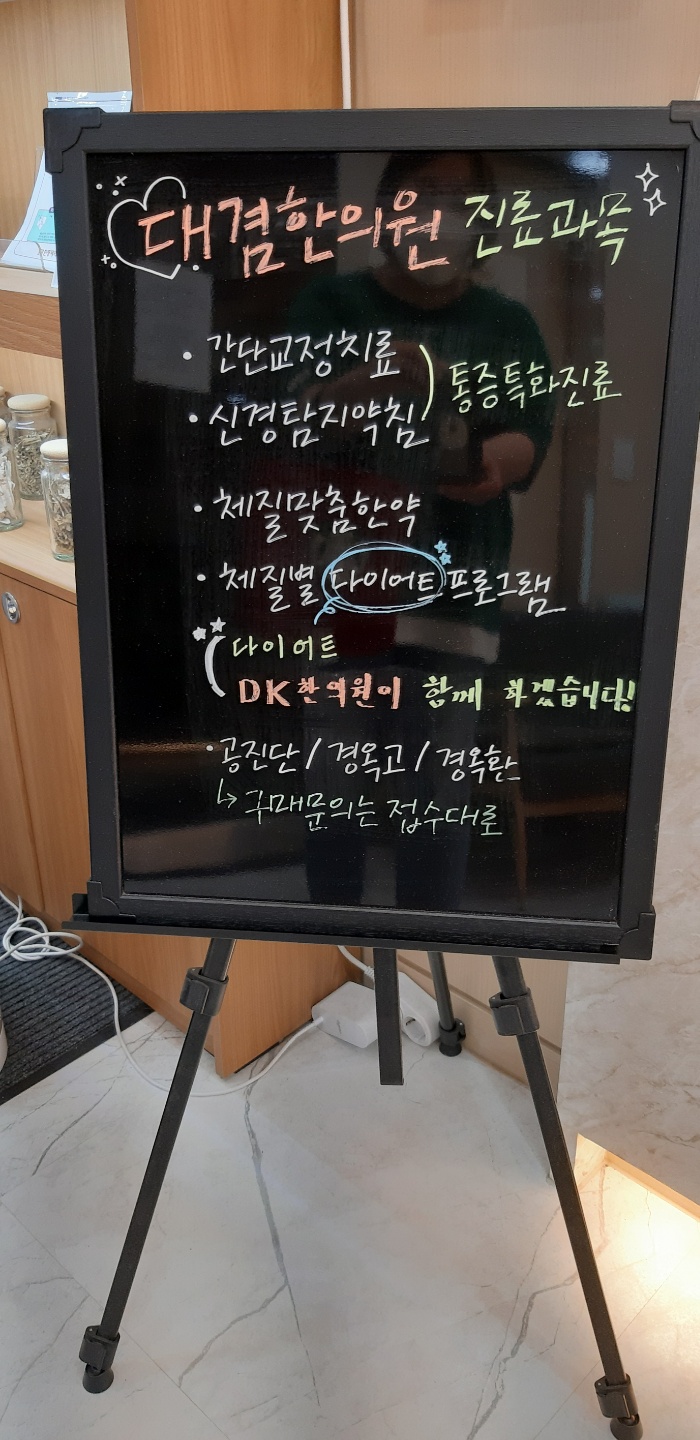 대겸한의원 진료과목
• 간단교정치료
• 신경탐지약침
통증특화진료
• 체질맞춤한약
• 체질별 다이어트 프로그램
다이어트
DK한의원이 함께 하겠습니다!
• 공진단 / 경옥고 / 경옥환
↳ 구매문의는 접수대로